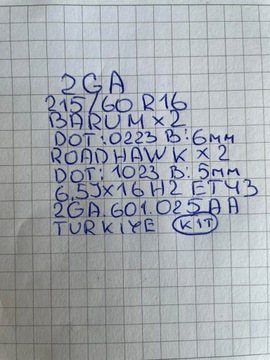 2GA
215/60 R16
BARUM x 2
DOT: 0223 B: 6мм
ROADHAWK x 2
DOT: 1023 B: 5мм
6,5Jx16 H2 ET43
2GA.601.025 AA
TURKIYE KIT